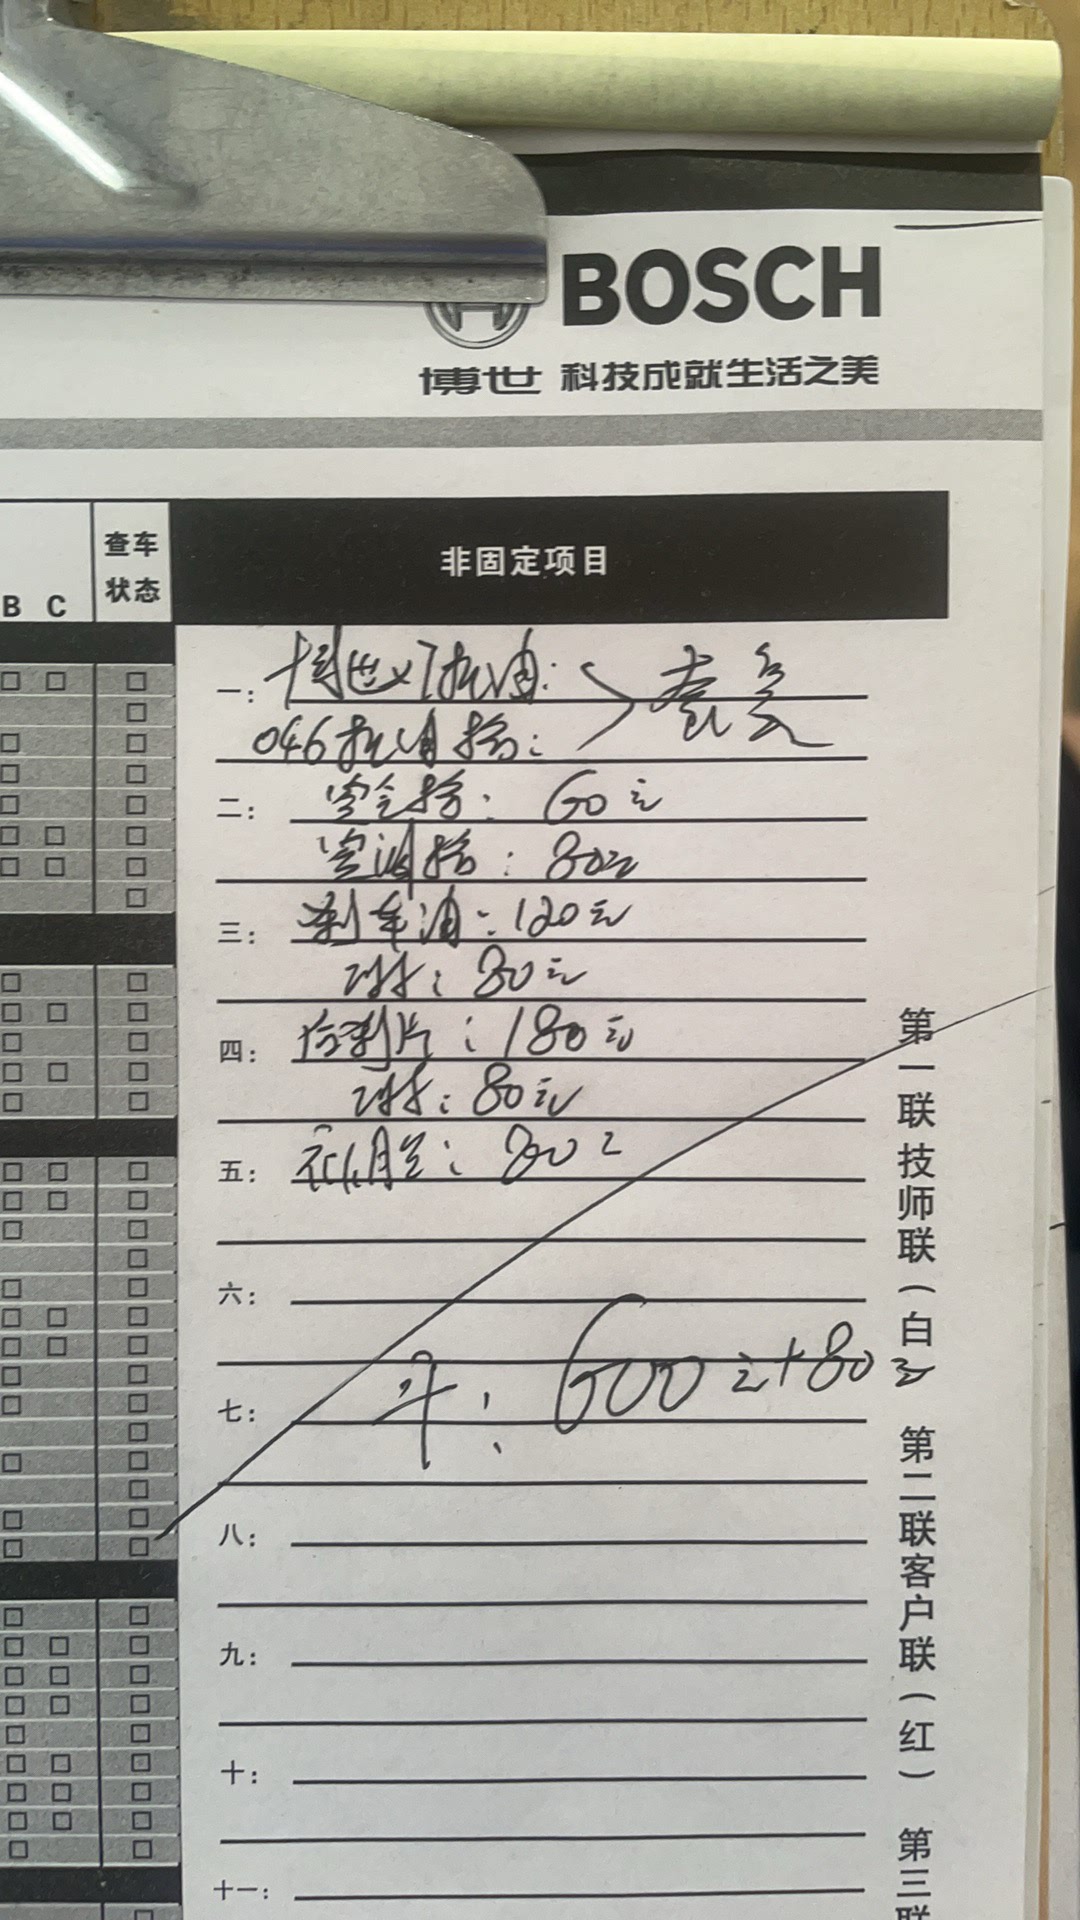 BOSCH
博世 科技成就生活之美
B C
查车
状态
非固定项目
一: 博世 机油: 套餐
046机油格:
二: 空气格: 60元
空调格: 80元
三: 刹车油: 120元
工时: 80元
四: 后刹片: 180元
工时: 80元
五: 补胎: 80元
六:
七: 共: 600元+80元
八:
九:
十:
十一:
第一联技师联(白)
第二联客户联(红)
第三联